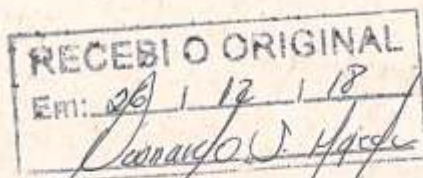 RECEBI O ORIGINAL
Em: 26 / 12 / 18